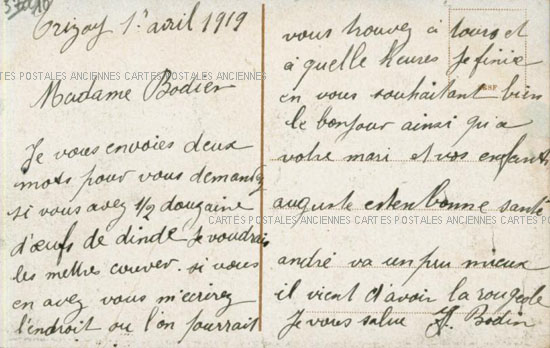 Orizay 1r avril 1919
Madame Bodier
Je vous envoies deux
mots pour vous demander
si vous avez 1/2 dougaine
d'œufs de dinde Je voudrais
les mettres couver. si vous
en avez vous m'écrirez
l'endroit ou l'on pourrait
vous trouvez à tours et
à quelle heures Je finie
en vous souhaitant bien
le bonjour ainsi qu'a
votre mari et vos enfants
auguste est en bonne santé
andré va un peu mieux
il vient d'avoir la rougeole
Je vous salue J. Bodin
CARTES POSTALES ANCIENNES CARTES POSTALES ANCIENNES CARTES POSTALES ANCIENNES CARTES POSTALES ANCIENNES
CARTES POSTALES ANCIENNES CARTES POSTALES ANCIENNES CARTES POSTALES